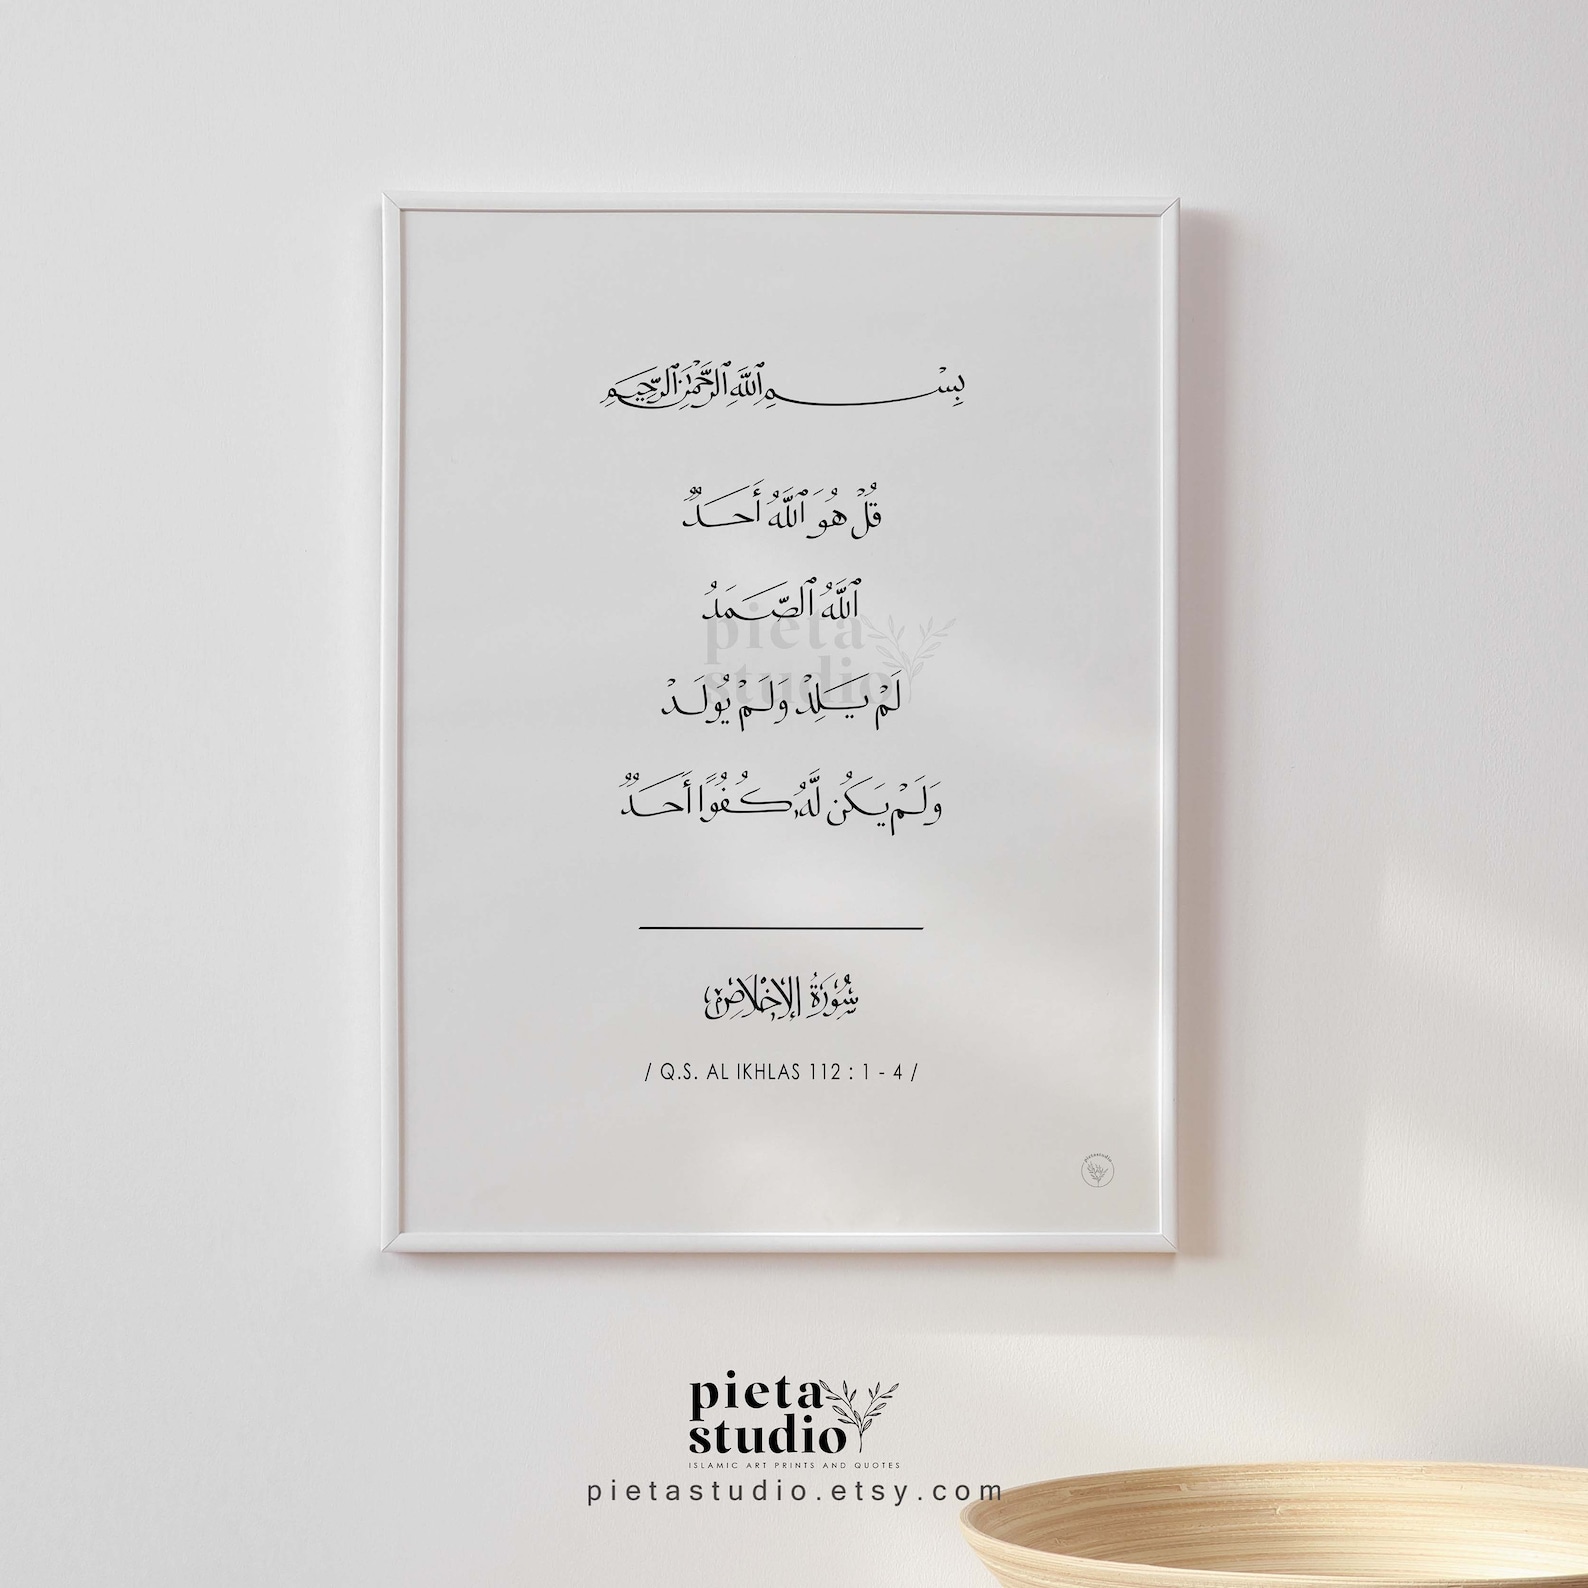 بِسْمِ ٱللَّهِ ٱلرَّحْمَٰنِ ٱلرَّحِيمِ
قُلْ هُوَ ٱللَّهُ أَحَدٌ
ٱللَّهُ ٱلصَّمَدُ
لَمْ يَلِدْ وَلَمْ يُولَدْ
وَلَمْ يَكُن لَّهُۥ كُفُوًا أَحَدٌ
pieta
studio
سُورَةُ الإِخْلَاصِ
/ Q.S. AL IKHLAS 112 : 1 - 4 /
pietastudio
pieta
studio
ISLAMIC ART PRINTS AND QUOTES
pietastudio.etsy.com